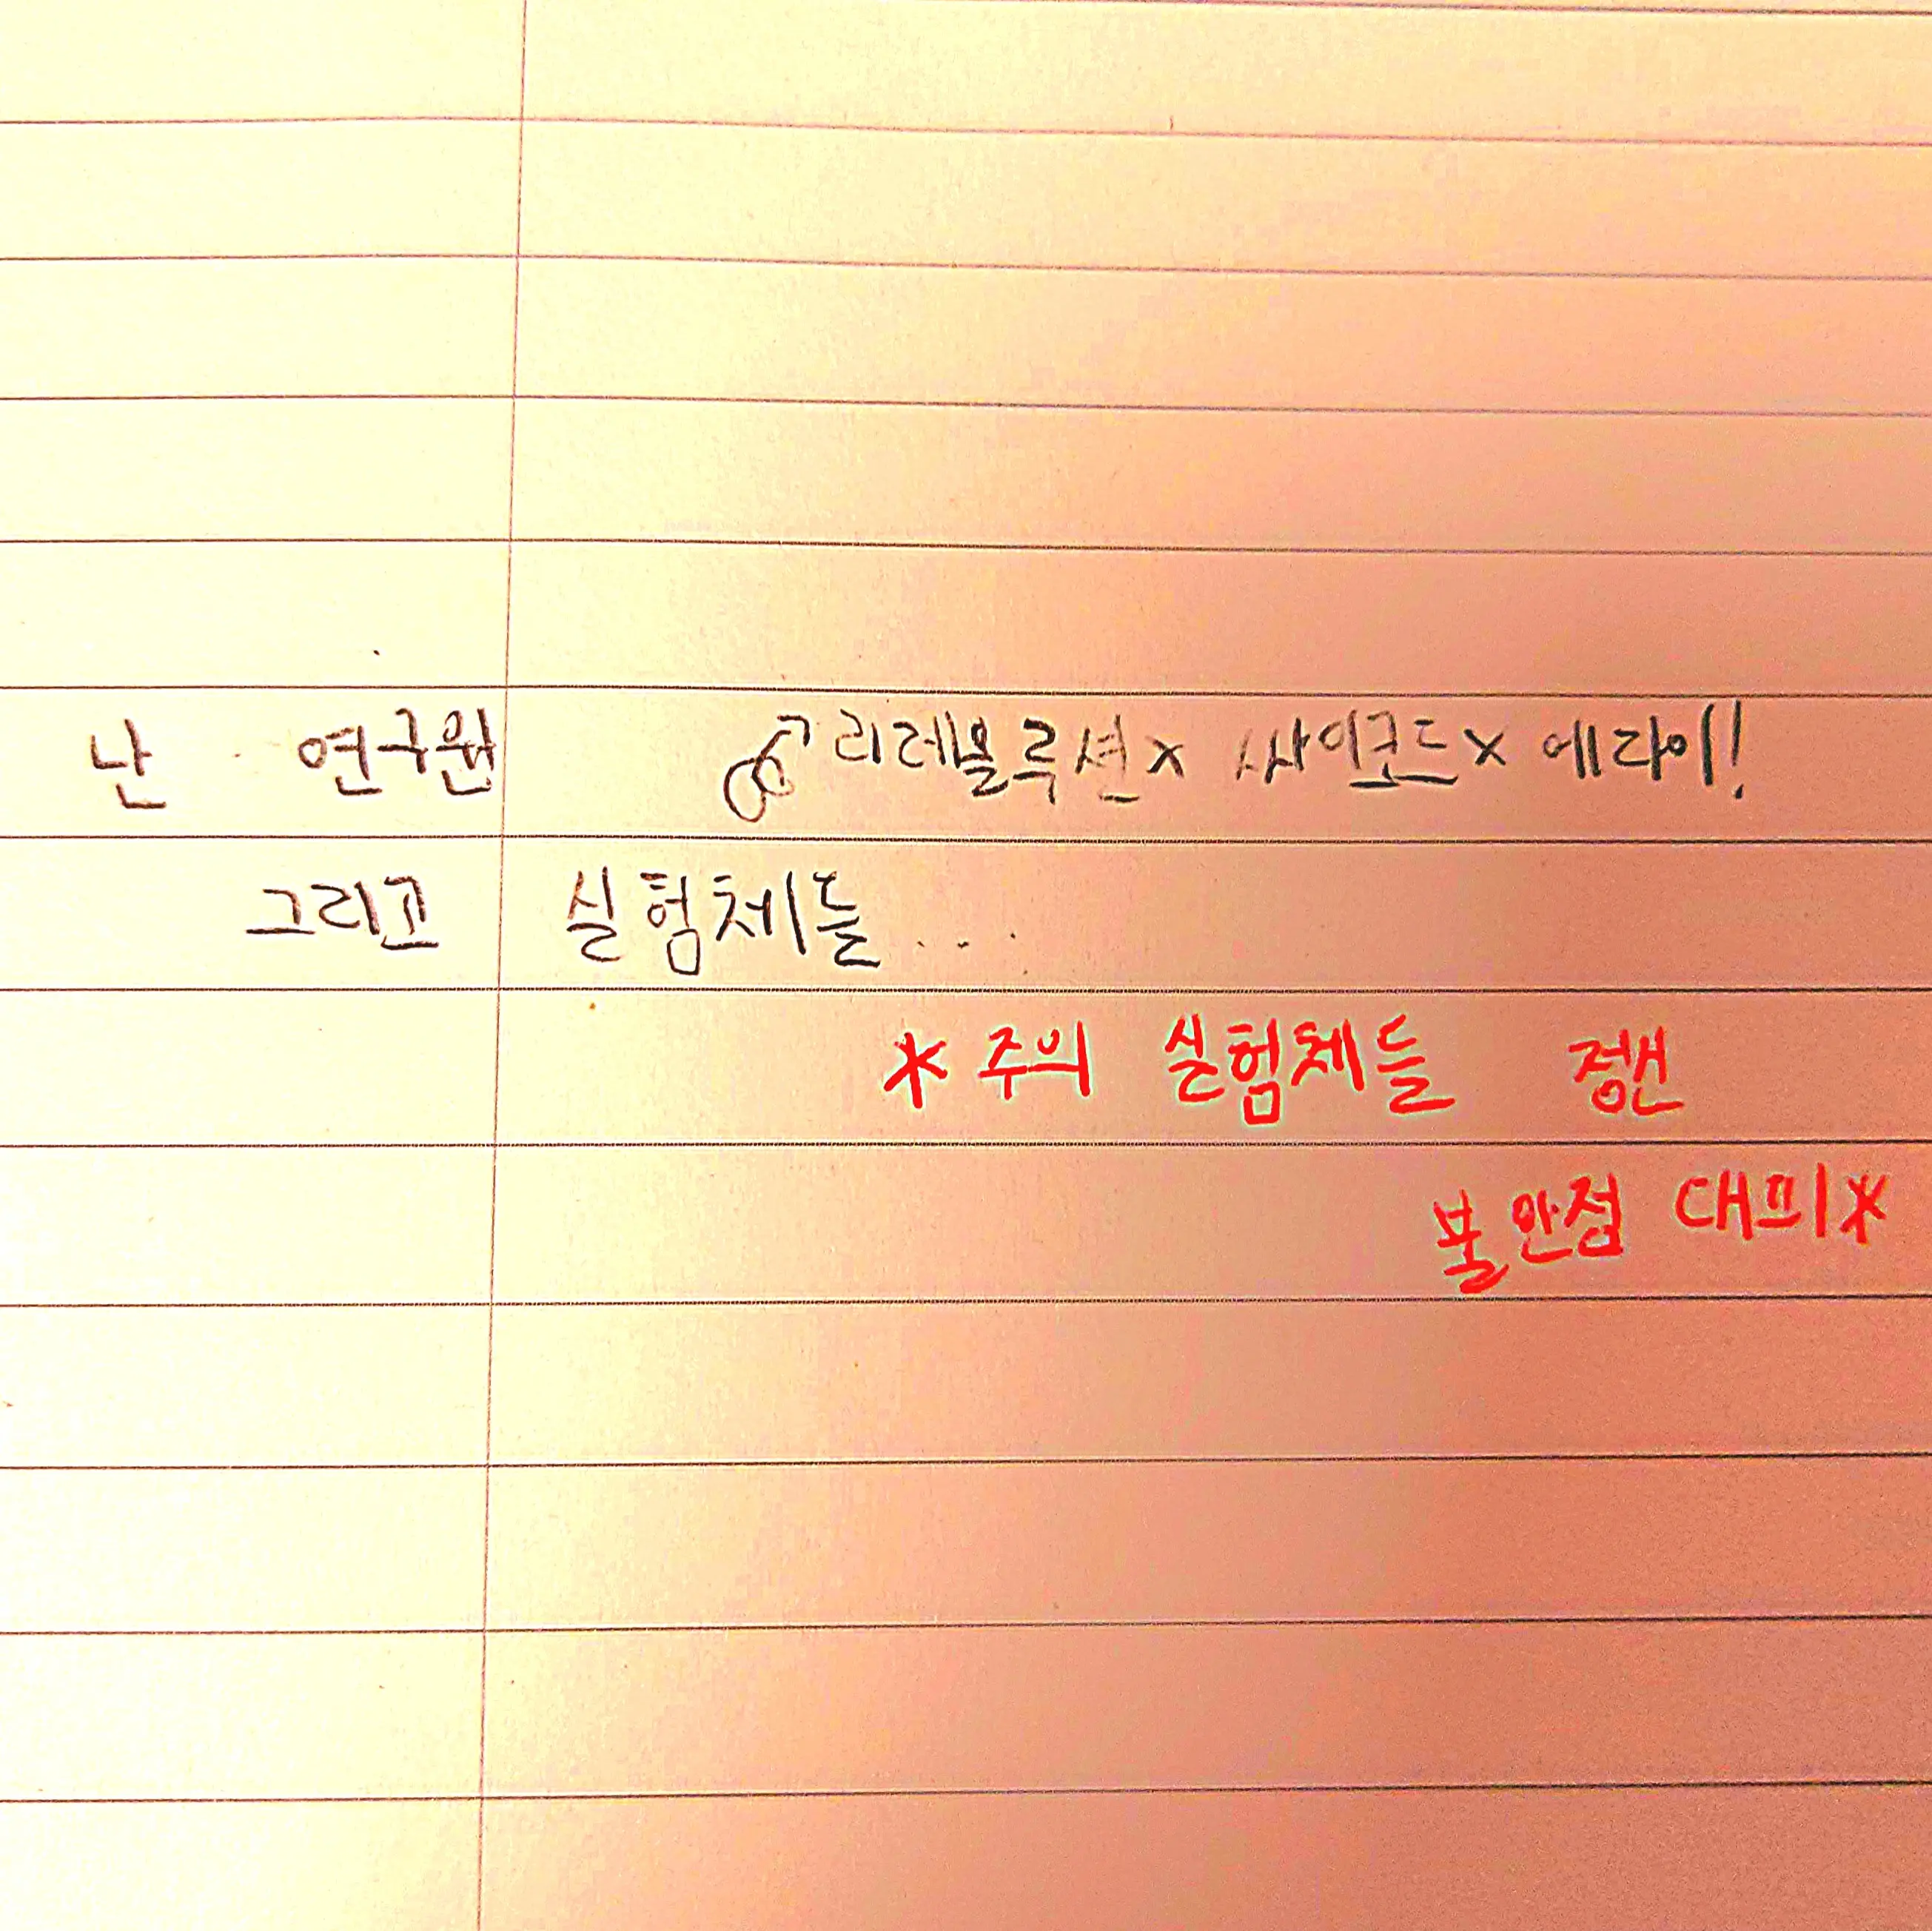 난 연구원 리레볼루션x 싸이코드x 에라이!
그리고 실험체들...
*주의 실험체들 정신
불안점 대피*